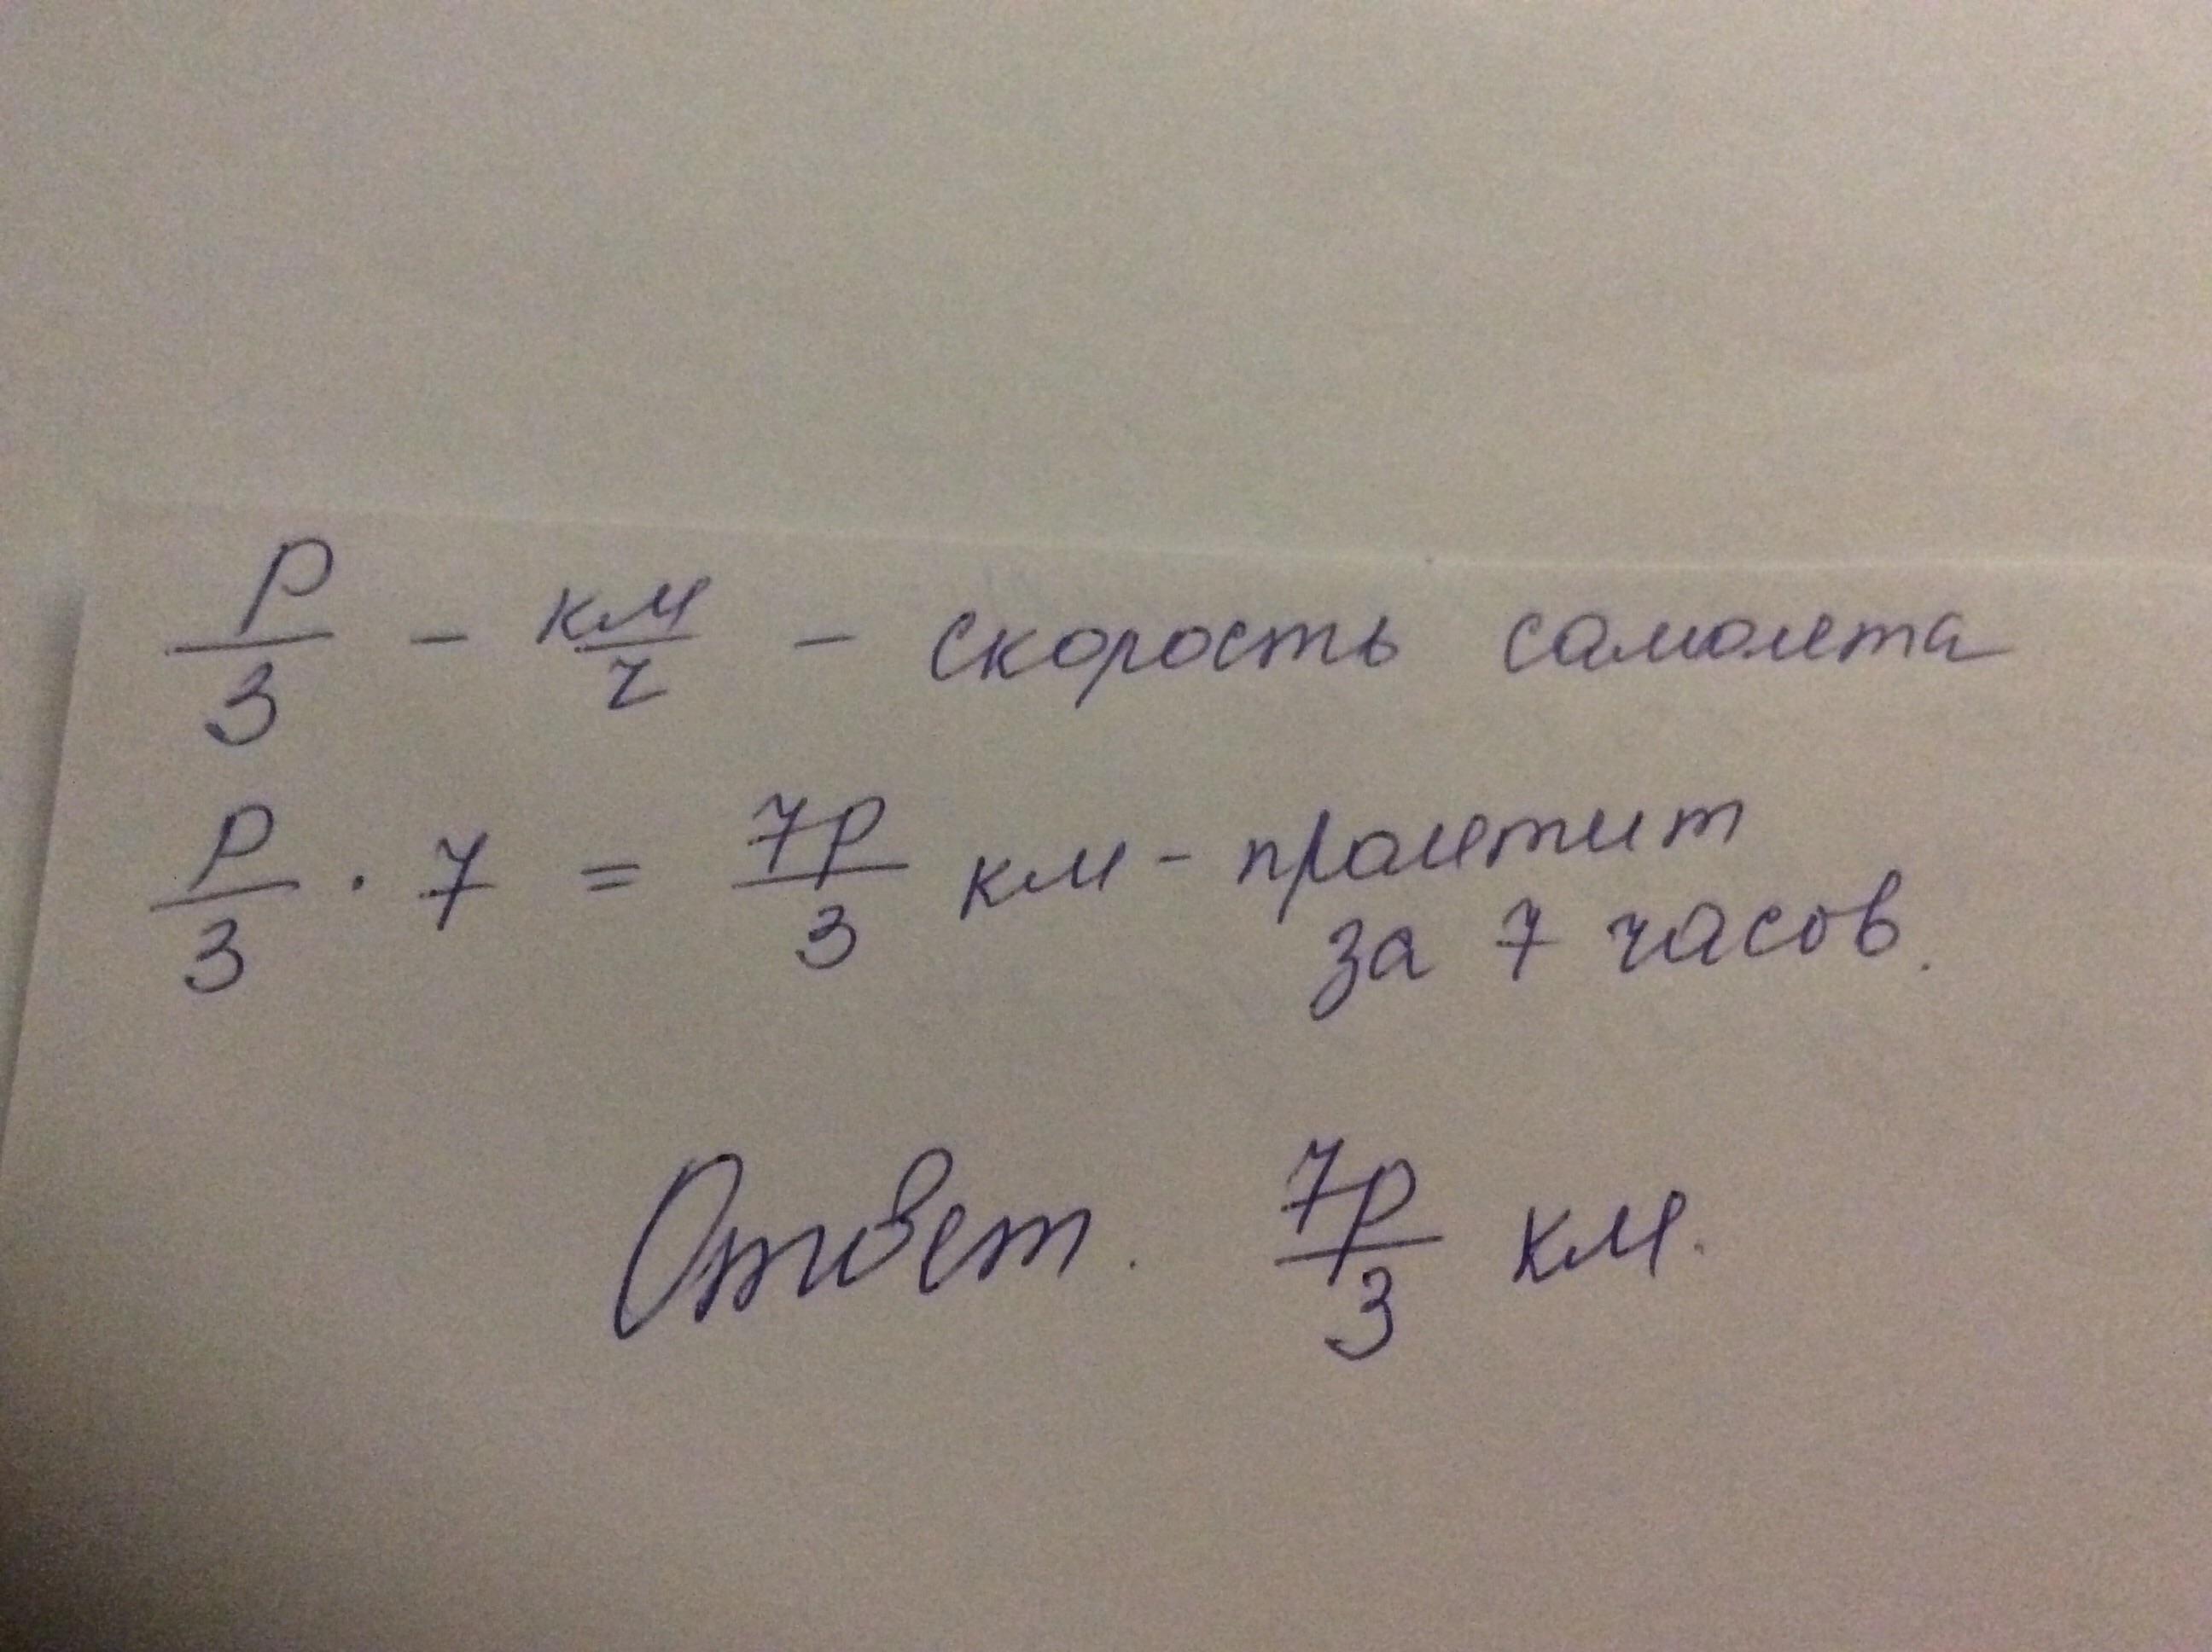 p/3 - км/ч - скорость самолета
p/3 · 7 = 7p/3 км - пролетит
за 7 часов.
Ответ. 7p/3 км.